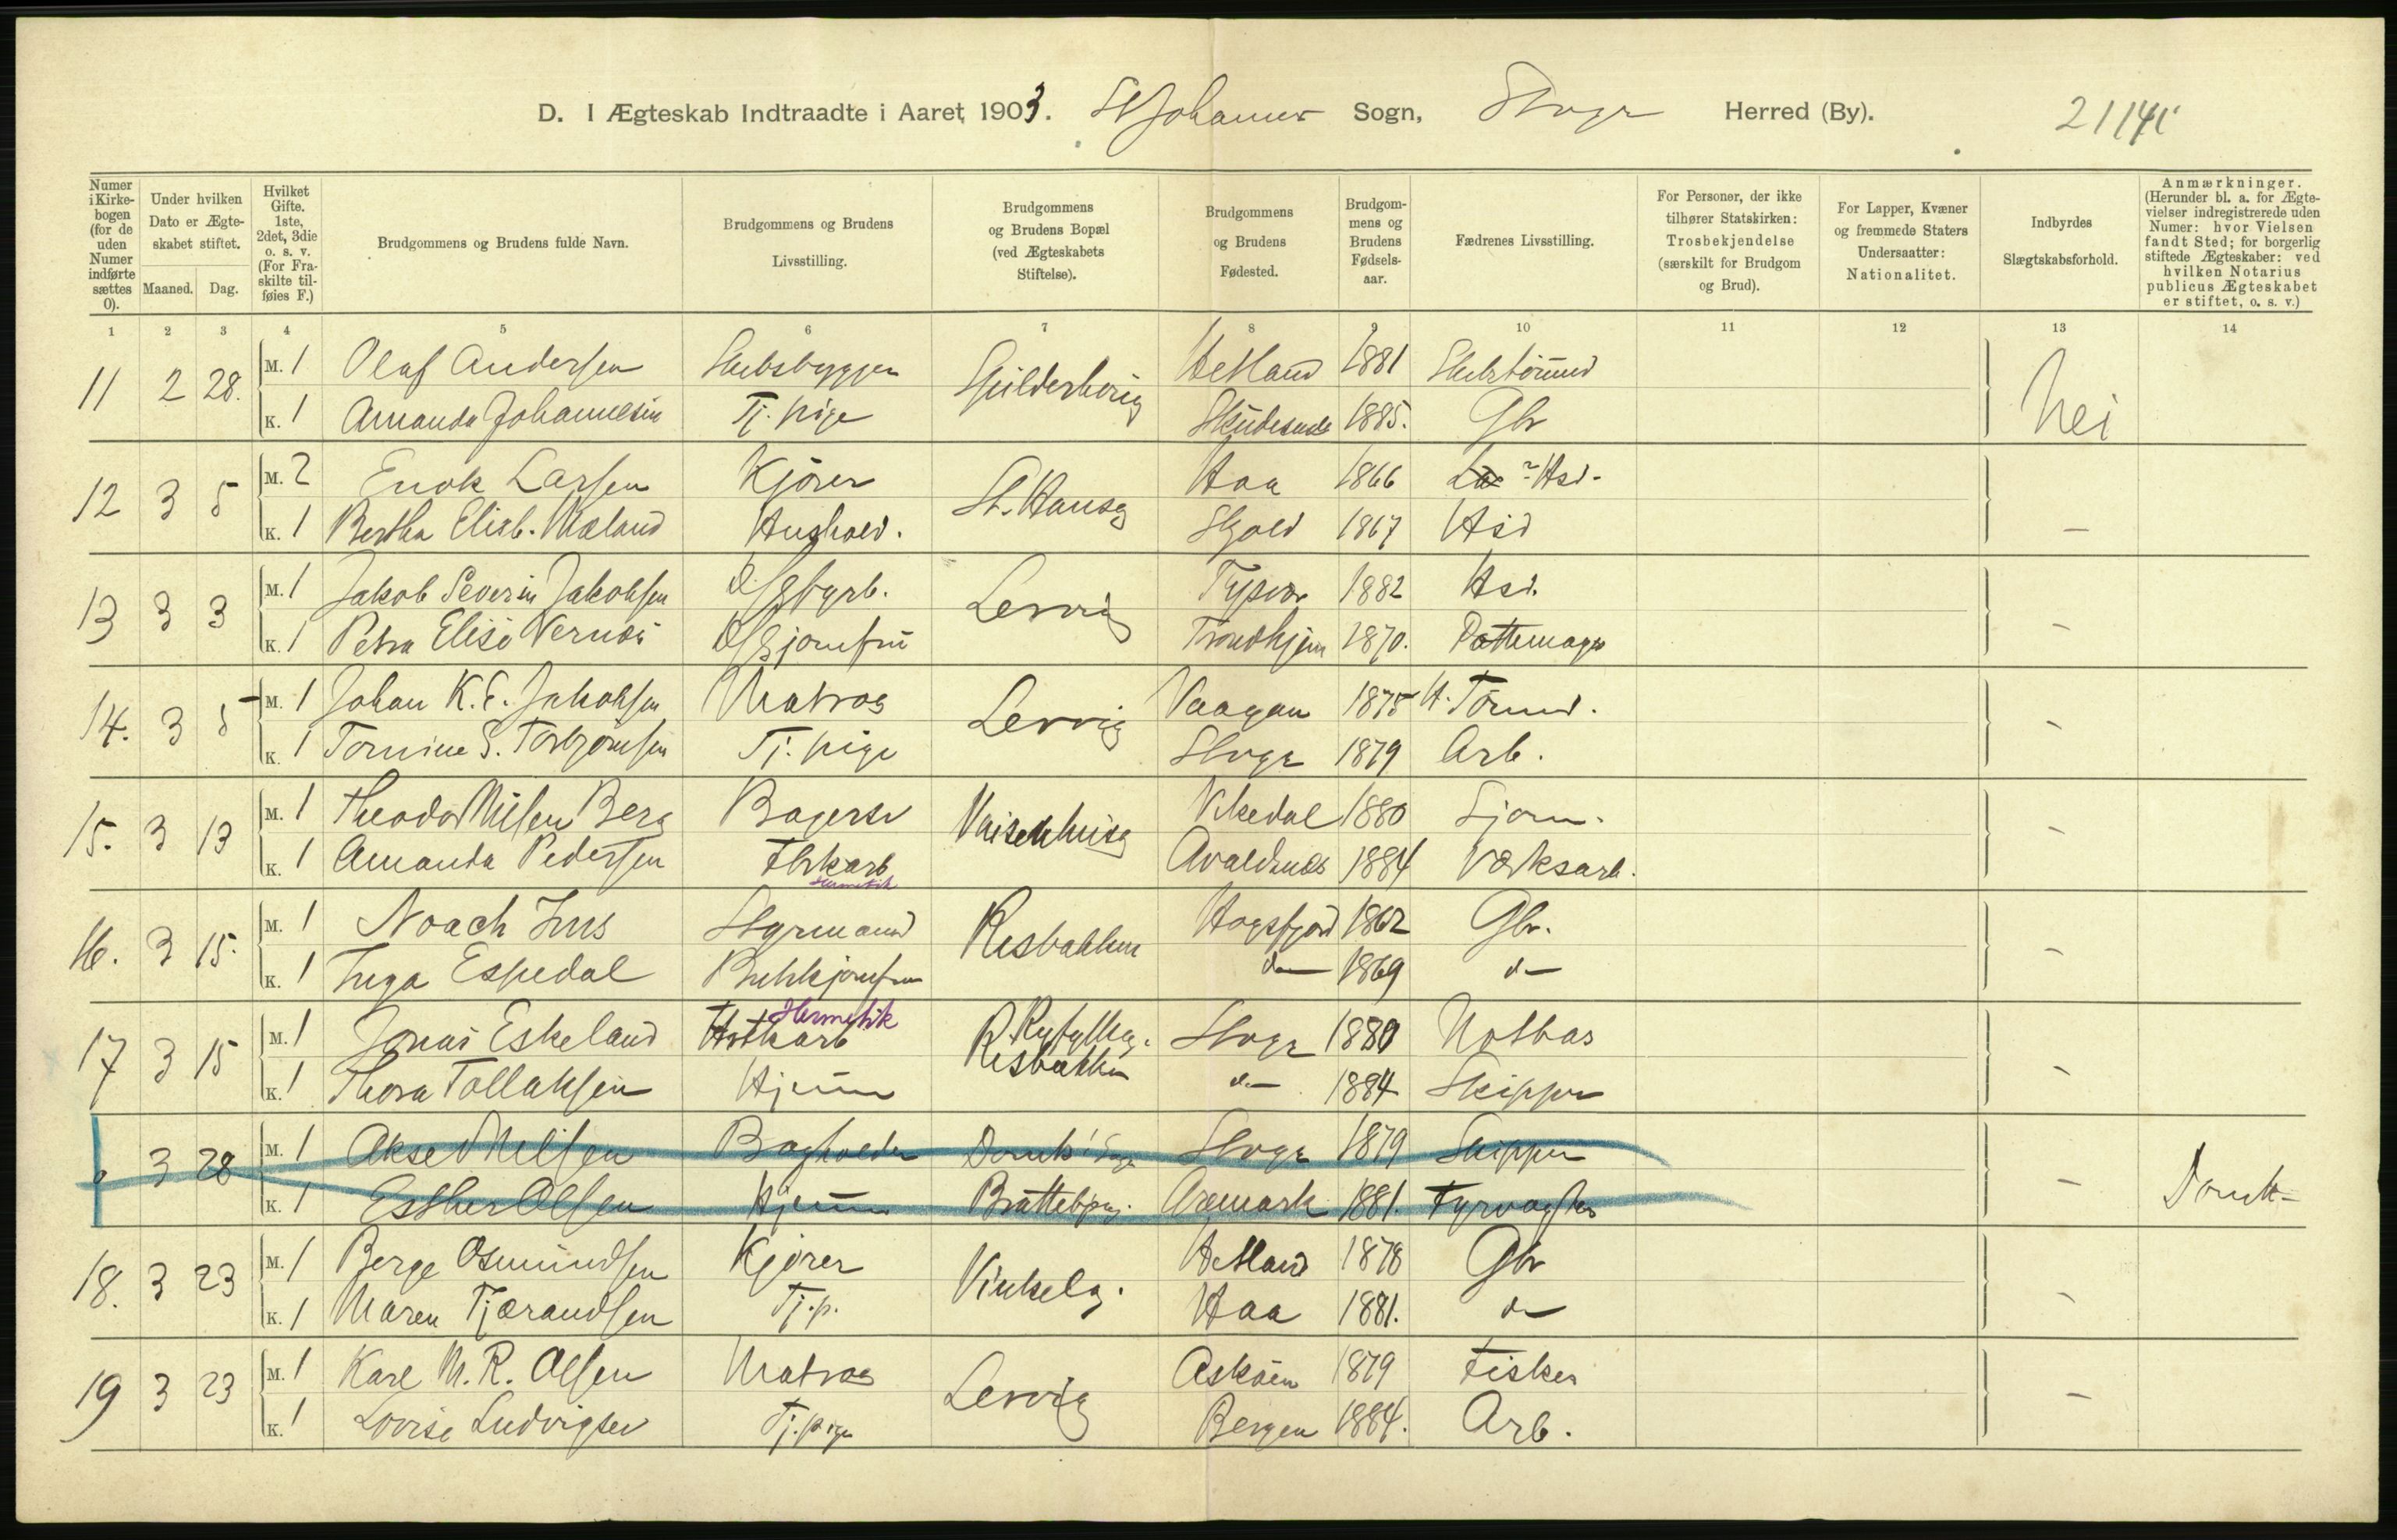 D. I Ægteskab Indtraadte i Aaret 1903. St Johannes Sogn, Stvgr Herred (By).
Numer i Kirkebogen (for de uden Numer indførte sættes 0).
Under hvilken Dato er Ægteskabet stiftet.
Maaned. Dag.
Hvilket Gifte. 1ste, 2det, 3die o. s. v. (For Fraskilte tilføies F.)
Brudgommens og Brudens fulde Navn.
Brudgommens og Brudens Livsstilling.
Brudgommens og Brudens Bopæl (ved Ægteskabets Stiftelse).
Brudgommens og Brudens Fødested.
Brudgommens og Brudens Fødselsaar.
Fædrenes Livsstilling.
For Personer, der ikke tilhører Statskirken: Trosbekjendelse (særskilt for Brudgom og Brud).
For Lapper, Kvæner og fremmede Staters Undersaatter: Nationalitet.
Indbyrdes Slægtskabsforhold.
Anmærkninger. (Herunder bl. a. for Ægtevielser indregistrerede uden Numer: hvor Vielsen fandt Sted; for borgerlig stiftede Ægteskaber: ved hvilken Notarius publicus Ægteskabet er stiftet, o. s. v.)
1 2 3 4 5 6 7 8 9 10 11 12 13 14
11 2 28. M. 1 Olaf Andersen Skibsbygger Gilderberig Hetland 1881 Skibstømmd Nei
K. 1 Amanda Johannesen Tj. pige Skudesnes 1885. Gbr
12 3 5 M. 2 Enok Larsen Kjører St. Hansg Haa 1866 Hsd.
K. 1 Bertha Elisb. Mæland Hushold. Skjold 1867 Hsd —
13 3 3 M. 1 Jakob Severin Jakobsen Ølbgarb. Lervig Tysvær 1882 Hsd.
K. 1 Petra Elise Vernøe jomfru Trondhjem 1870. Pottemager —
14. 3 5 M. 1 Johan K. E. Jakobsen Matros Lervig Vaagan 1875 H. Tømmd.
K. 1 Tomine S. Torbjørnsen Tj. pige Stvgr 1879 Arb. —
15. 3 13 M. 1 Theodor Nilsen Berg Bagersv Vaisenhusg Vikedal 1880 Sjøm.
K. 1 Amanda Pedersen Fbrkarb Hermetik Avaldsnes 1884 Værksarb. —
16. 3 15. M. 1 Noach Ims Styrmand Risbakken Høgsfjord 1862 Gbr.
K. 1 Inga Espedal Butikjomfru do 1869 do —
17 3 15 M. 1 Jonas Eskeland Hermetik R. Ryfylkeg. Stvgr 1880 Notbas
K. 1 Thora Tollaksen Hjemme Risbakken do 1884 Skipper —
0 3 28 M. 1 Aksel Nilsen Bogholder Stvgr 1879 Skipper
K. 1 Esther Olsen Hjemme Brattebjerg. Aremark 1881. Fyrvogter — Domk-
18. 3 23 M. 1 Berge Osmundsen Kjører Vinkelg. Hetland 1878 Gbr
K. 1 Maren Tjørandsen Tj.p. Haa 1881. do —
19 3 23 M. 1 Karl M. R. Olsen Matros Lervig Askøen 1879 Fisker
K. 1 Lovise Ludvigsen Tj. pige Bergen 1884. Arb. —